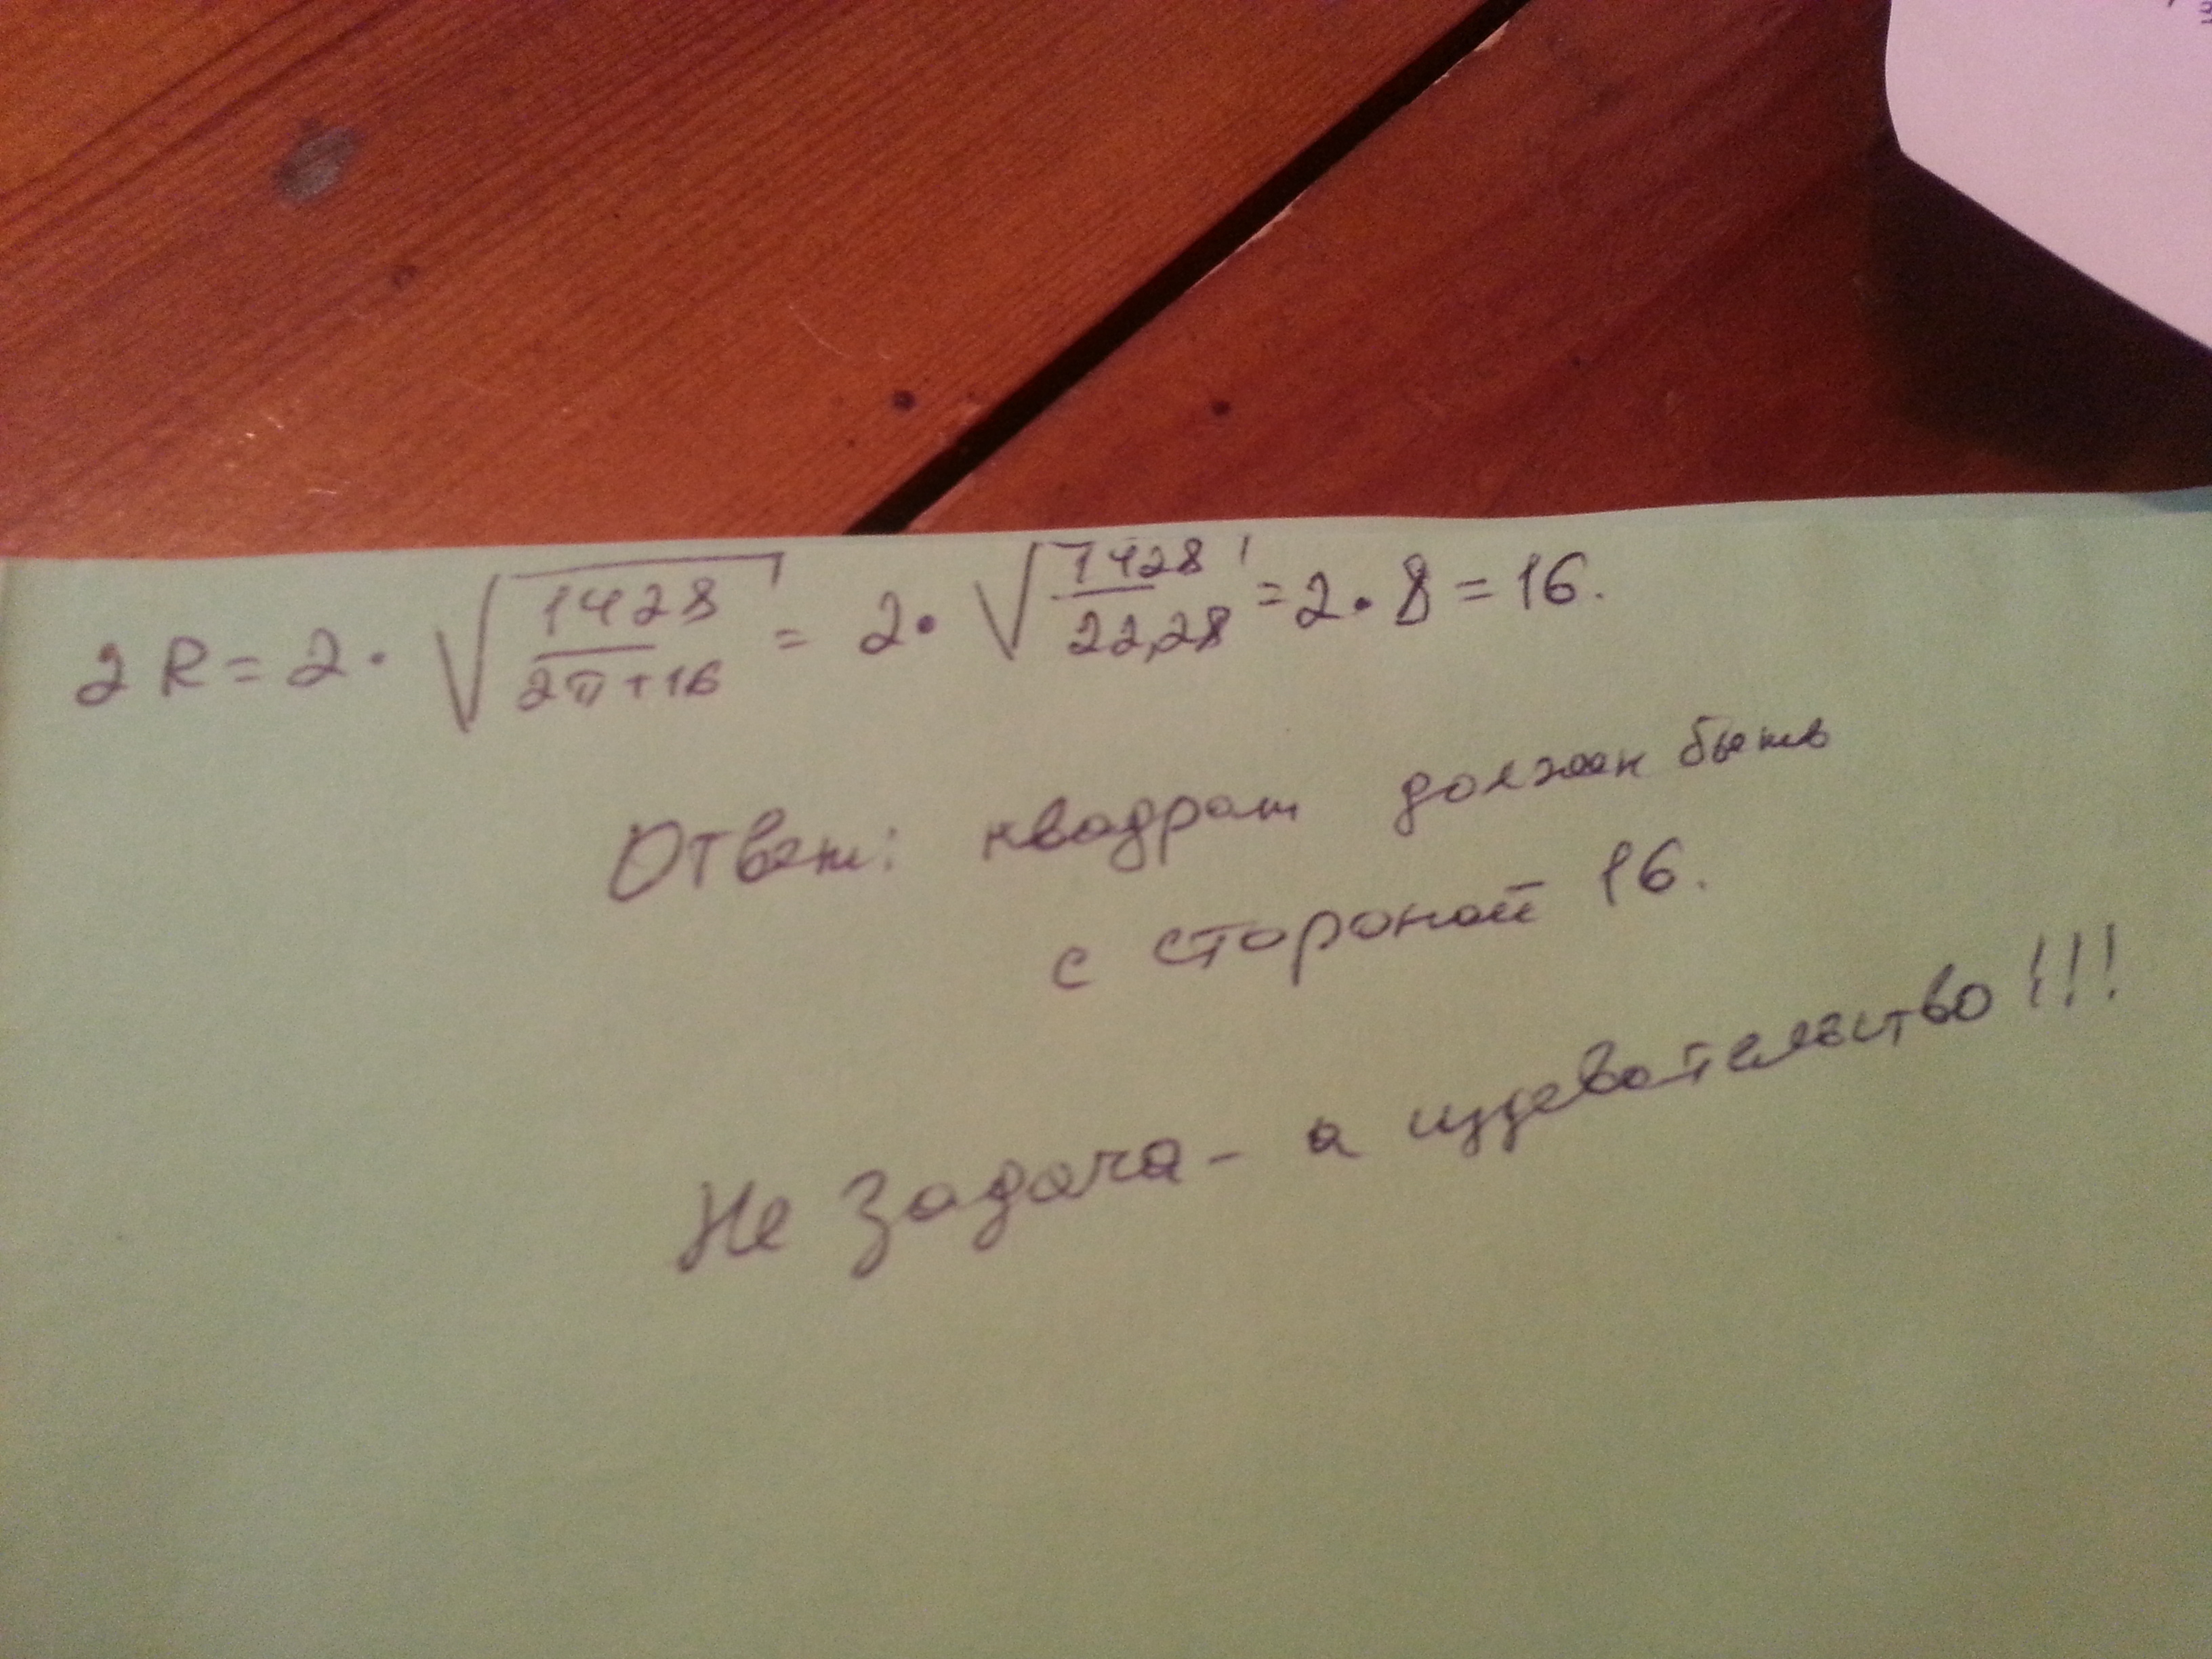 2R = 2 · √(1428/(2π+16)) = 2 · √(1428/22,28) = 2 · 8 = 16.
Ответ: квадрат должен быть
с стороной 16.
Не задача - а издевательство!!!